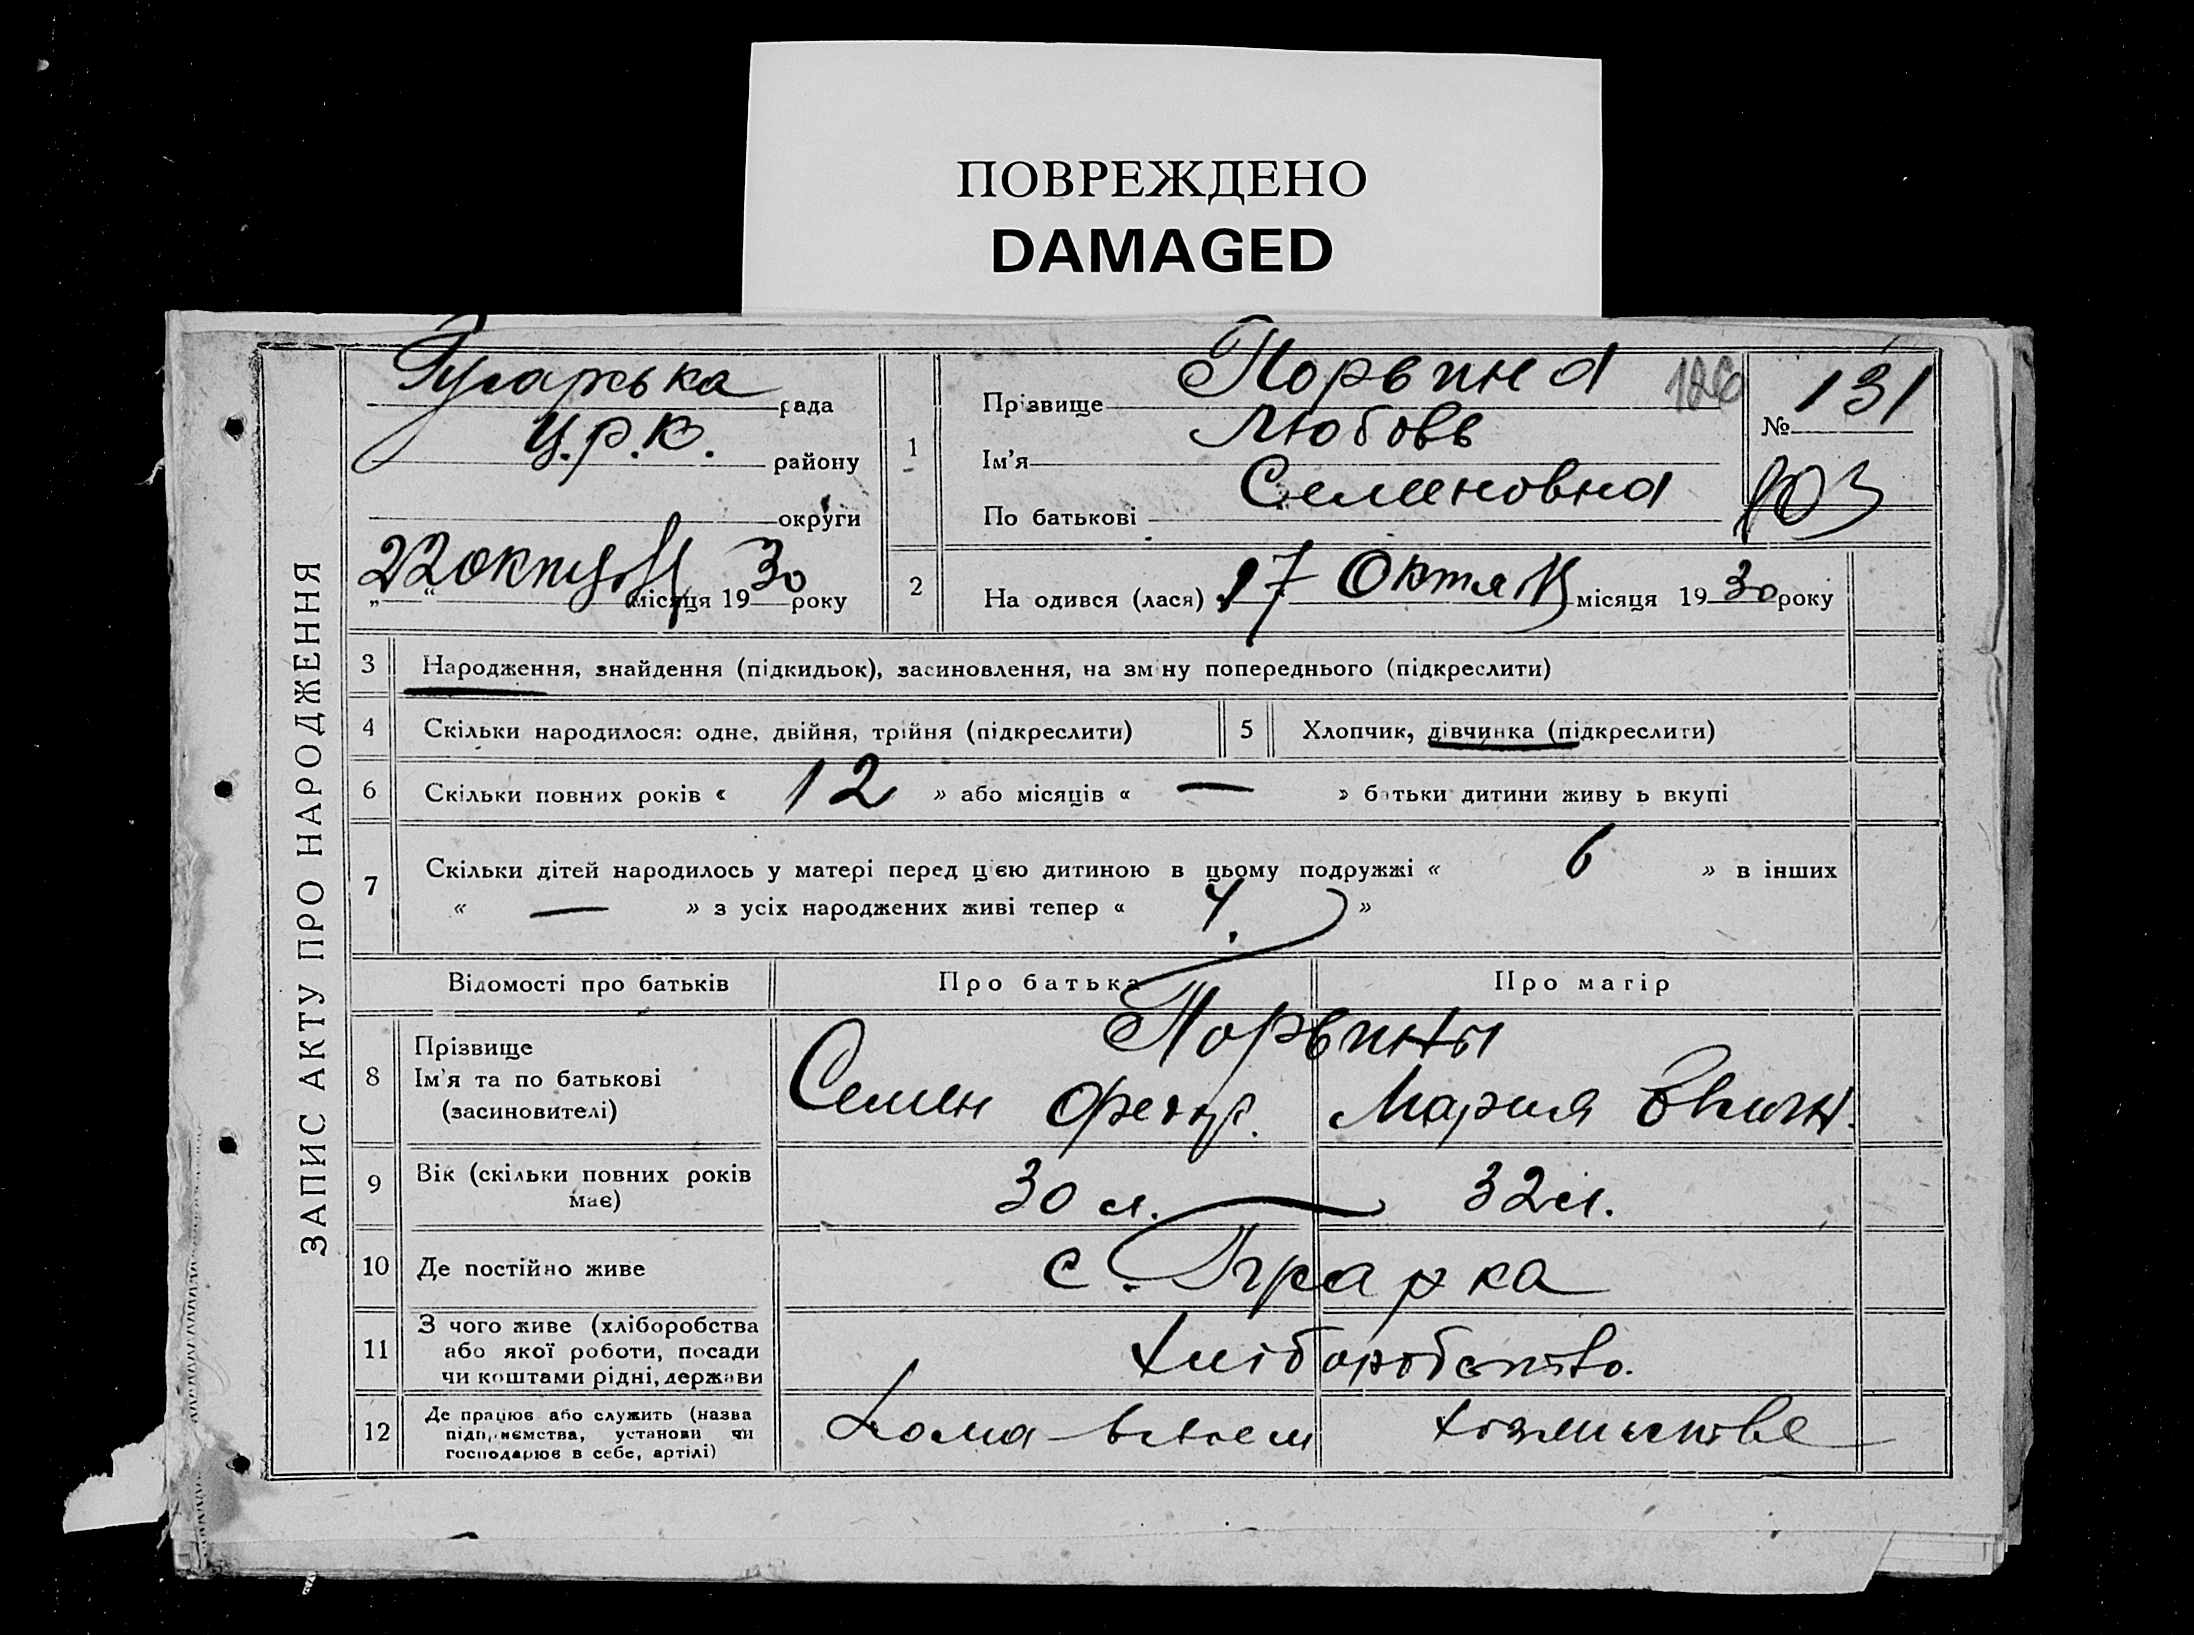 ПОВРЕЖДЕНО
DAMAGED
ЗАПИС АКТУ ПРО НАРОДЖЕННЯ
рада
Ц.Р.К. району
округи
22 місяця 1930 року
1
Прізвище Порвина
Ім'я Любовь
По батькові Семеновна
№ 131
103
2 На одився (лася) 17 Октя місяця 1930 року
3 Народження, знайдення (підкидьок), засиновлення, на зміну попереднього (підкреслити)
4 Скільки народилося: одне, двійня, трійня (підкреслити) 5 Хлопчик, дівчинка (підкреслити)
6 Скільки повних років « 12 » або місяців « — » батьки дитини живу ь вкупі
7 Скільки дітей народилось у матері перед цією дитиною в цьому подружжі « 6 » в інших
« — » з усіх народжених живі тепер « 4. »
Відомості про батьків Про батька Про матір
Порвины
8 Прізвище
Ім'я та по батькові
(засиновителі)
Семен Мария
9 Вік (скільки повних років
має)
30 л. 32 л.
10 Де постійно живе с.
11 З чого живе (хліборобства
або якої роботи, посади
чи коштами рідні, держави
Хліборобство.
12 Де працює або служить (назва
підприємства, установи чи
господарює в себе, артілі)
Дома в своем хозяистве